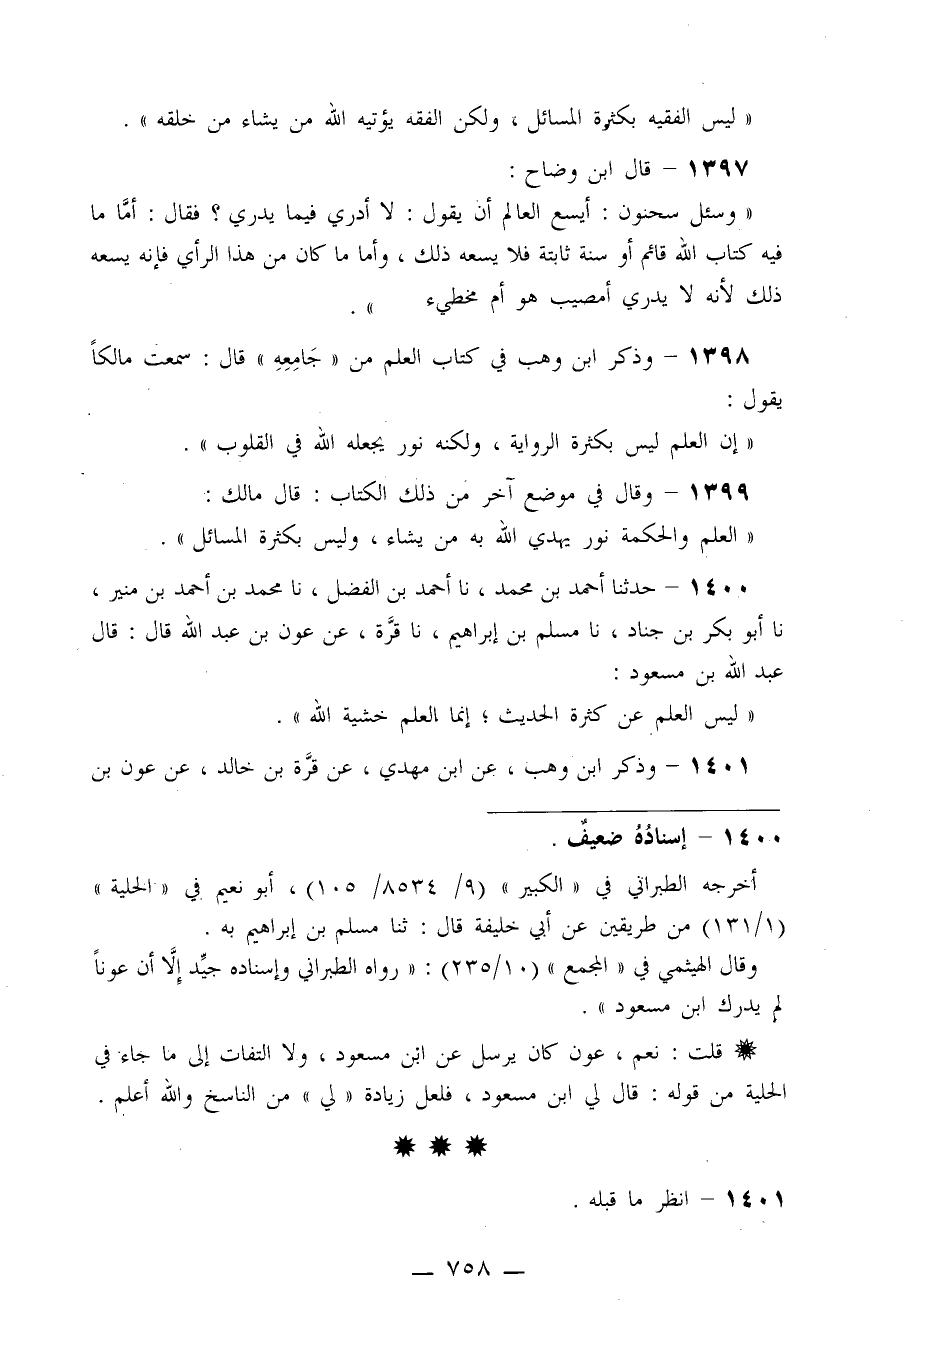 « ليس الفقيه بكثرة المسائل ، ولكن الفقه يؤتيه الله من يشاء من خلقه » .
١٣٩٧ – قال ابن وضاح :
« وسئل سحنون : أيسع العالم أن يقول : لا أدري فيما يدري ؟ فقال : أمَّا ما
فيه كتاب الله قائم أو سنة ثابتة فلا يسعه ذلك ، وأما ما كان من هذا الرأي فإنه يسعه
ذلك لأنه لا يدري أمصيب هو أم مخطيء » .
١٣٩٨ – وذكر ابن وهب في كتاب العلم من « جَامِعِهِ » قال : سمعت مالكاً
يقول :
« إن العلم ليس بكثرة الرواية ، ولكنه نور يجعله الله في القلوب » .
١٣٩٩ – وقال في موضع آخر من ذلك الكتاب : قال مالك :
« العلم والحكمة نور يهدي الله به من يشاء ، وليس بكثرة المسائل » .
١٤٠٠ – حدثنا أحمد بن محمد ، نا أحمد بن الفضل ، نا محمد بن أحمد بن منير ،
نا أبو بكر بن جناد ، نا مسلم بن إبراهيم ، نا قرَّة ، عن عون بن عبد الله قال : قال
عبد الله بن مسعود :
« ليس العلم عن كثرة الحديث ؛ إنما العلم خشية الله » .
١٤٠١ – وذكر ابن وهب ، عن ابن مهدي ، عن قرَّة بن خالد ، عن عون بن
١٤٠٠ – إسنادُهُ ضعيفٌ .
أخرجه الطبراني في « الكبير » (٩/ ٨٥٣٤/ ١٠٥) ، أبو نعيم في « الحلية »
(١٣١/١) من طريقين عن أبي خليفة قال : ثنا مسلم بن إبراهيم به .
وقال الهيثمي في « المجمع » (٢٣٥/١٠) : « رواه الطبراني وإسناده جيِّد إلَّا أن عوناً
لم يدرك ابن مسعود » .
✹ قلت : نعم ، عون كان يرسل عن ابن مسعود ، ولا التفات إلى ما جاء في
الحلية من قوله : قال لي ابن مسعود ، فلعل زيادة « لي » من الناسخ والله أعلم .
✹ ✹ ✹
١٤٠١ – انظر ما قبله .
— ٧٥٨ —